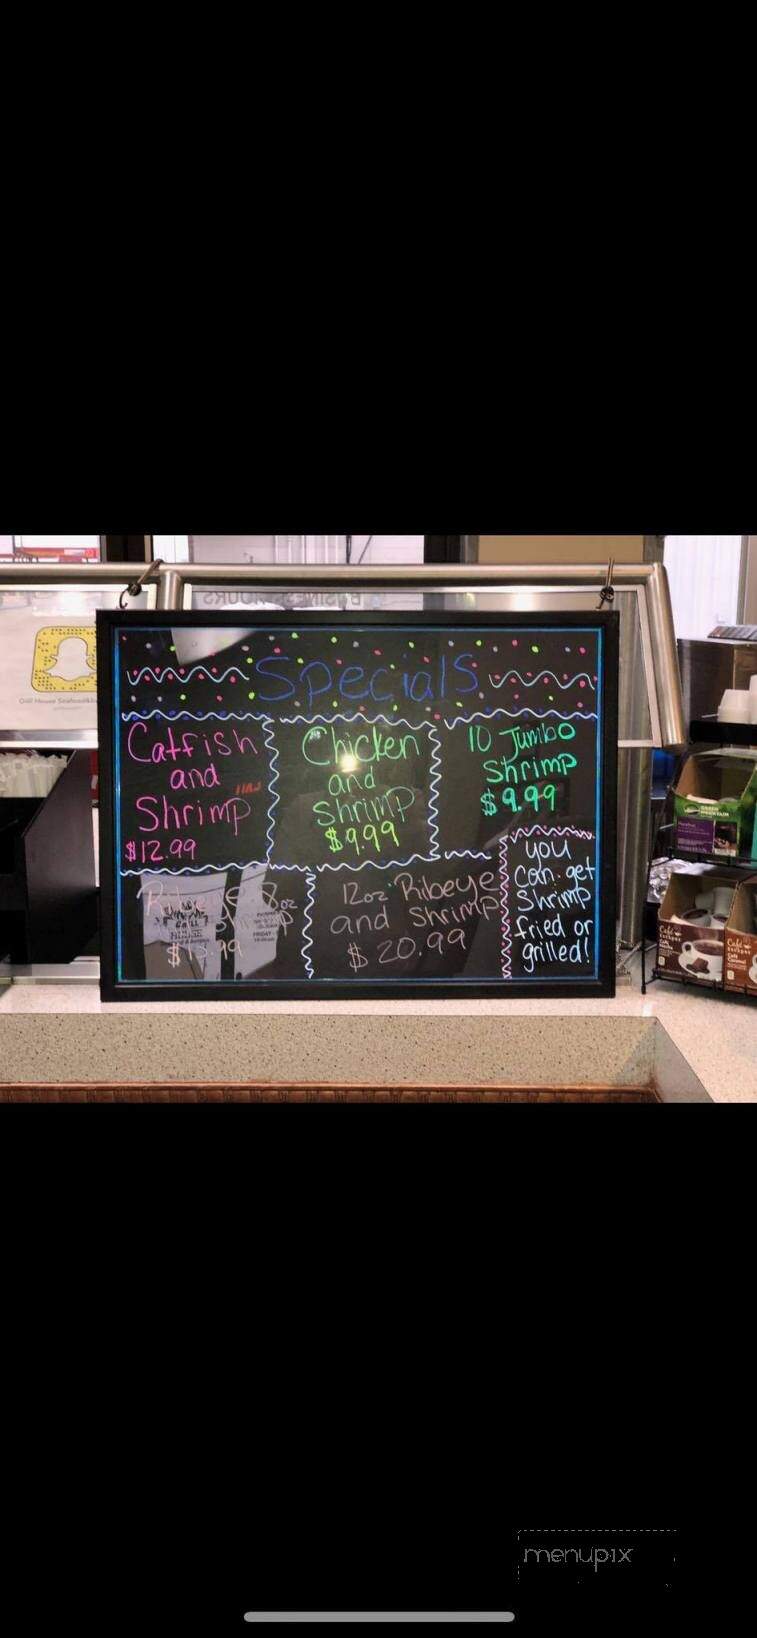 BUSINESS HOURS
Specials
Catfish
and
Shrimp
$12.99
Chicken
and
shrimp
$9.99
10 Jumbo
Shrimp
$9.99
Ribeye 8oz
Shrimp
12oz Ribeye
and Shrimp
$20.99
you
can get
Shrimp
fried or
grilled!
GREEN MOUNTAIN
Café
Café
menupix